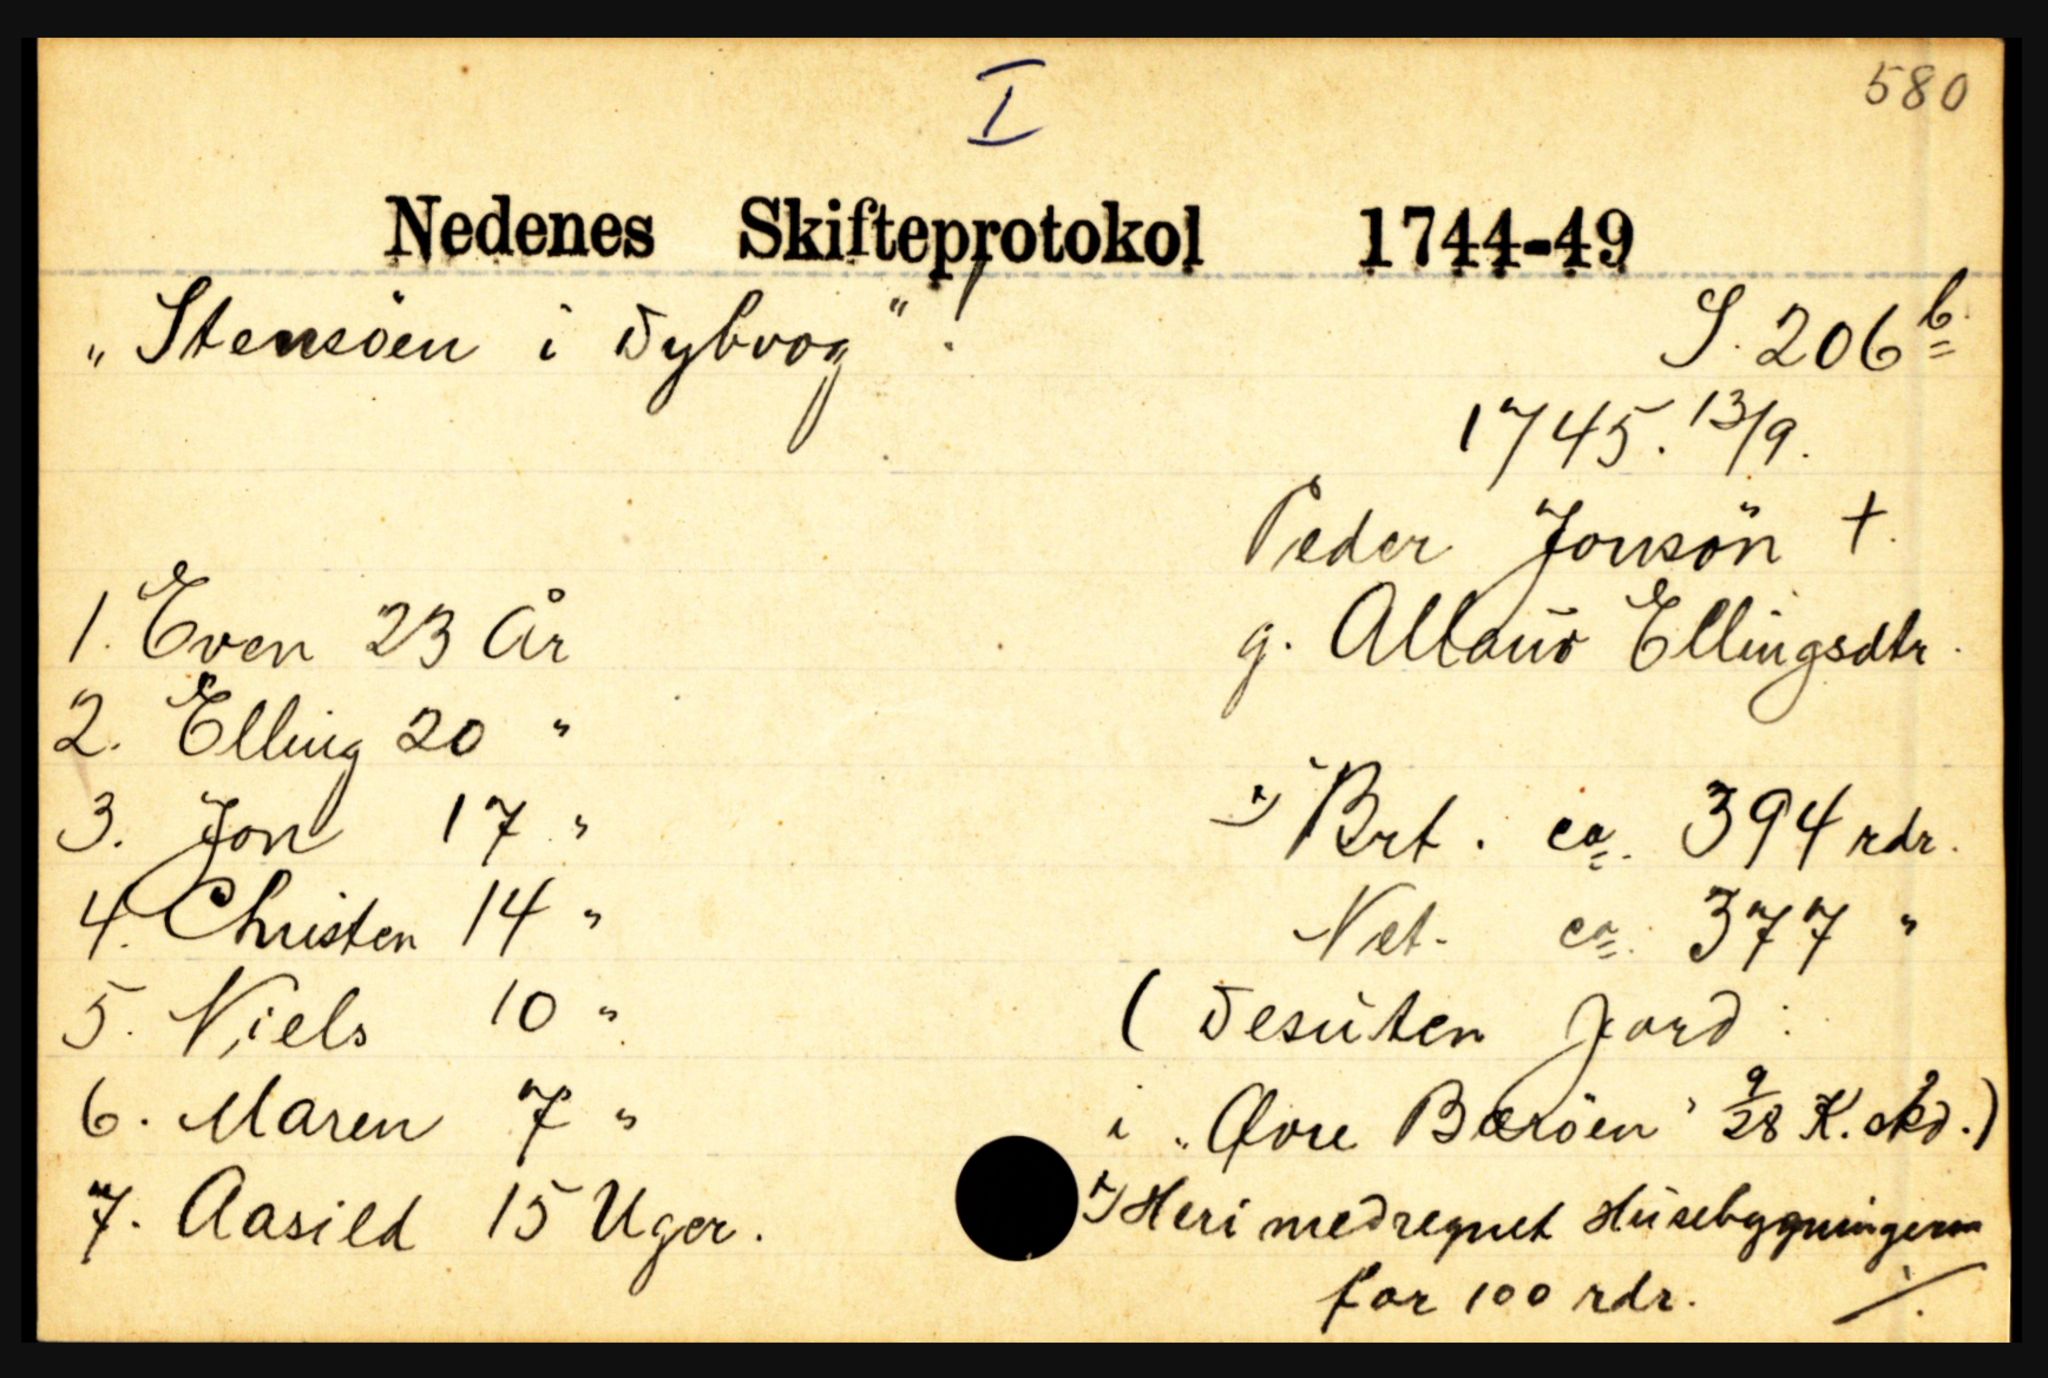 I
580
Nedenes Skifteprotokol 1744-49
„Stensöen i Dybvog".
S. 206 b
1745. 13/9.
Peder Jonsön +.
g. Allaug Ellingsdtr.
1. Even 23 År
2. Elling 20 "
3. Jon 17 "
4. Christen 14 "
5. Niels 10 "
6. Maren 7 "
7. Aasild 15 Uger.
x) Brt. ca. 394 rdr.
Net. ca. 377 "
( Desuten Jord :
i „Øvre Boröen" 9/28 K. skd.)
x) Heri medregnet Husebygningerne
for 100 rdr. ./.